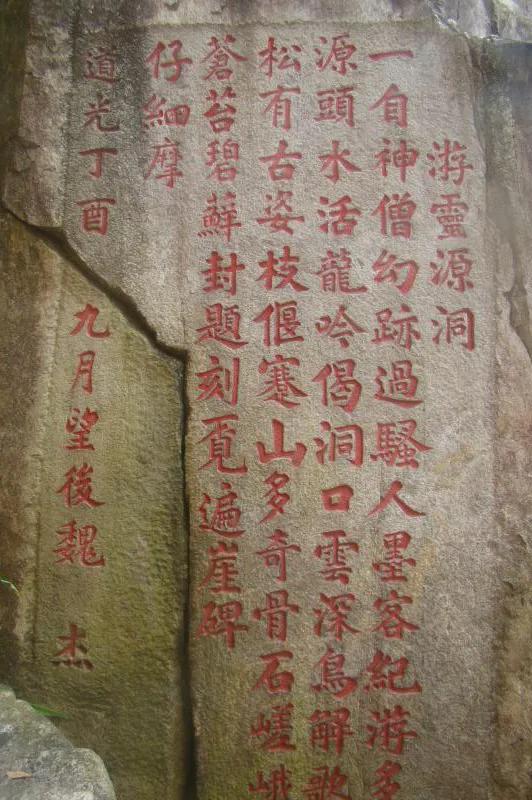 游靈源洞
一自神僧幻跡過騷人墨客紀游多
源頭水活龍吟偈洞口雲深鳥解歌
松有古姿枝偃蹇山多奇骨石嵯峨
蒼苔碧蘚封題刻覔遍崖碑
仔細摩
道光丁酉九月望後魏杰